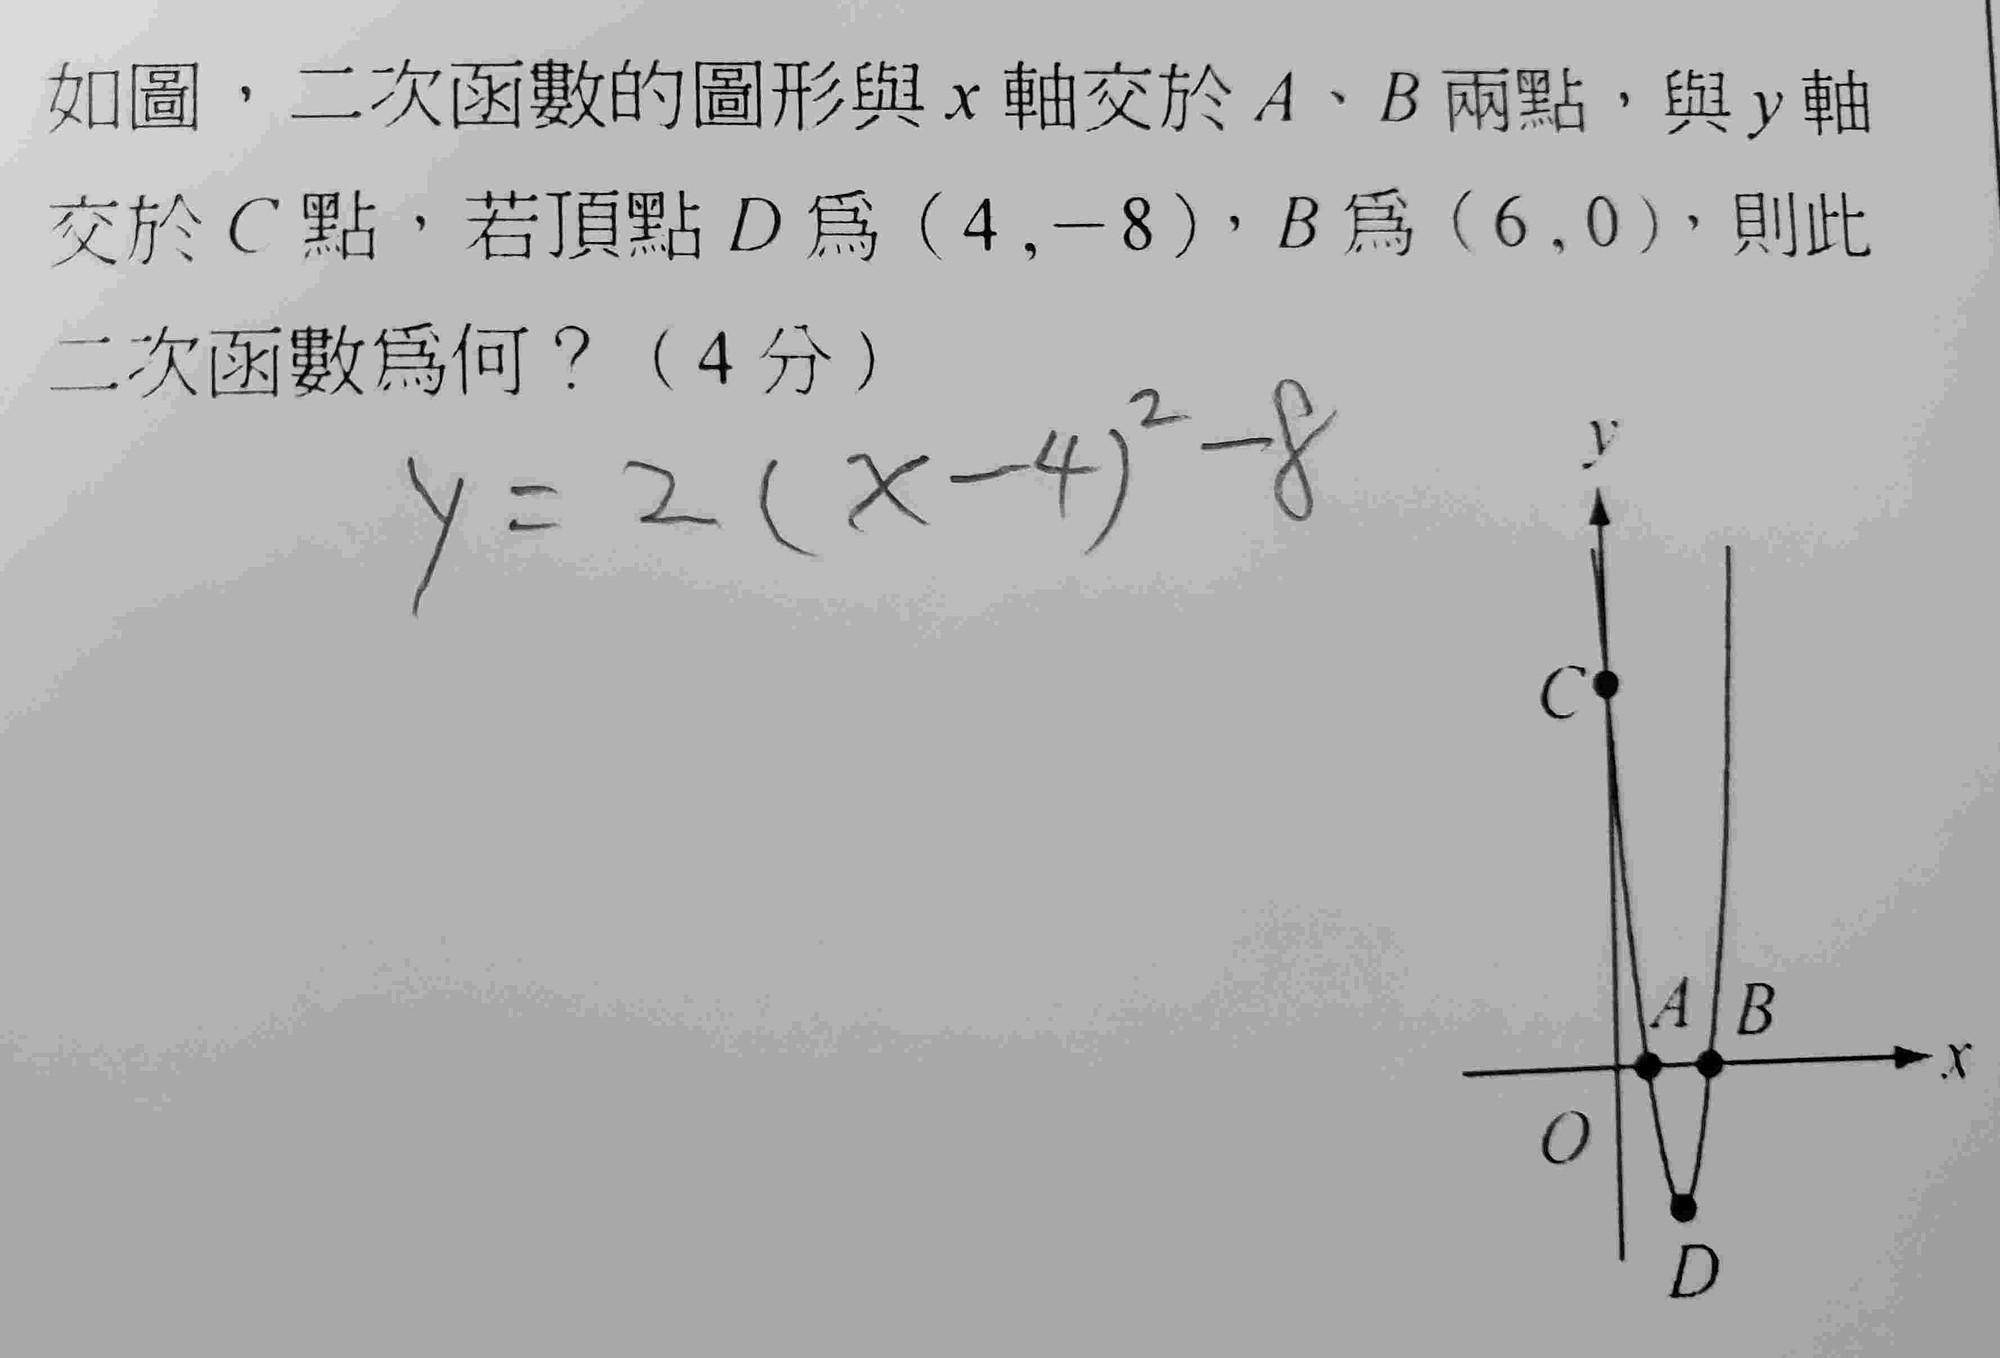 如圖，二次函數的圖形與 x 軸交於 A、B 兩點，與 y 軸
交於 C 點，若頂點 D 為（4,－8），B 為（6,0），則此
二次函數為何？（4 分）
y = 2(x-4)² -8
y
C
A
B
x
O
D